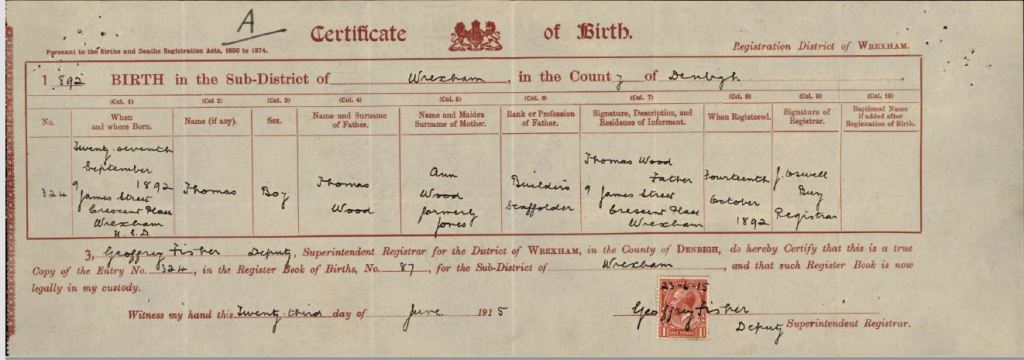 A
Certificate of Birth.
Pursuant to the Births and Deaths Registration Acts, 1836 to 1874.
Registration District of WREXHAM.
1892 BIRTH in the Sub-District of Wrexham, in the County of Denbigh
(Col. 1) (Col 2) (Col. 3) (Col. 4) (Col. 5) (Col. 6) (Col. 7) (Col. 8) (Col. 9) (Col. 10)
No.
When
and where Born.
Name (if any).
Sex.
Name and Surname
of Father.
Name and Maiden
Surname of Mother.
Rank or Profession
of Father.
Signature, Description, and
Residence of Informant.
When Registered.
Signature of
Registrar.
Baptismal Name
if added after
Registration of Birth.
324
Twenty-seventh
September
1892
9 James Street
Crescent Place
Wrexham
U.S.D.
Thomas
Boy
Thomas
Wood
Ann
Wood
formerly
Jones
Builder's
Scaffolder
Thomas Wood
Father
9 James Street
Crescent Place
Wrexham
Fourteenth
October
1892
J. Oswell
Bury
Registrar
I, Geoffrey Fisher Deputy, Superintendent Registrar for the District of WREXHAM, in the County of DENBIGH, do hereby Certify that this is a true
Copy of the Entry No. 324, in the Register Book of Births, No. 87, for the Sub-District of Wrexham, and that such Register Book is now
legally in my custody.
Witness my hand this Twenty-third day of June 1915
23-6-15
Geoffrey Fisher
Deputy Superintendent Registrar.
1 ONE PENNY 1